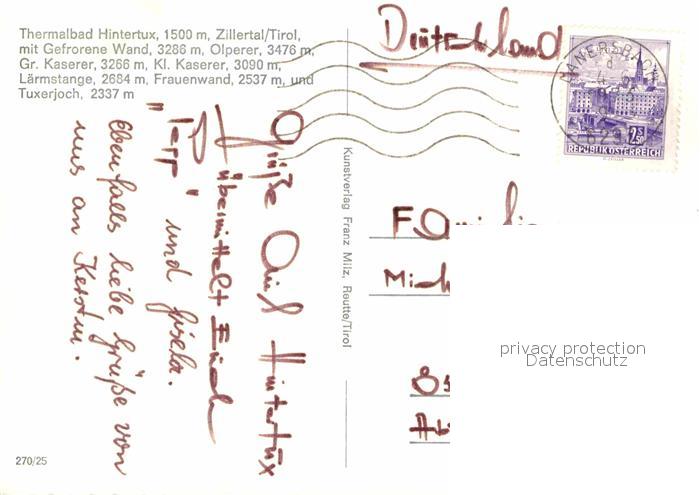 Thermalbad Hintertux, 1500 m, Zillertal/Tirol,
mit Gefrorene Wand, 3286 m, Olperer, 3476 m,
Gr. Kaserer, 3266 m, Kl. Kaserer, 3090 m,
Lärmstange, 2684 m, Frauenwand, 2537 m, und
Tuxerjoch, 2337 m
Deutschland
2S50
REPUBLIK ÖSTERREICH
Grüße Aus Hintertux
übermittelt Euch
"Sepp" und Gisela.
Ebenfalls liebe Grüße von
uns an Kerstin.
Kunstverlag Franz Milz, Reutte/Tirol
Familie
Mich
privacy protection
Datenschutz
270/25